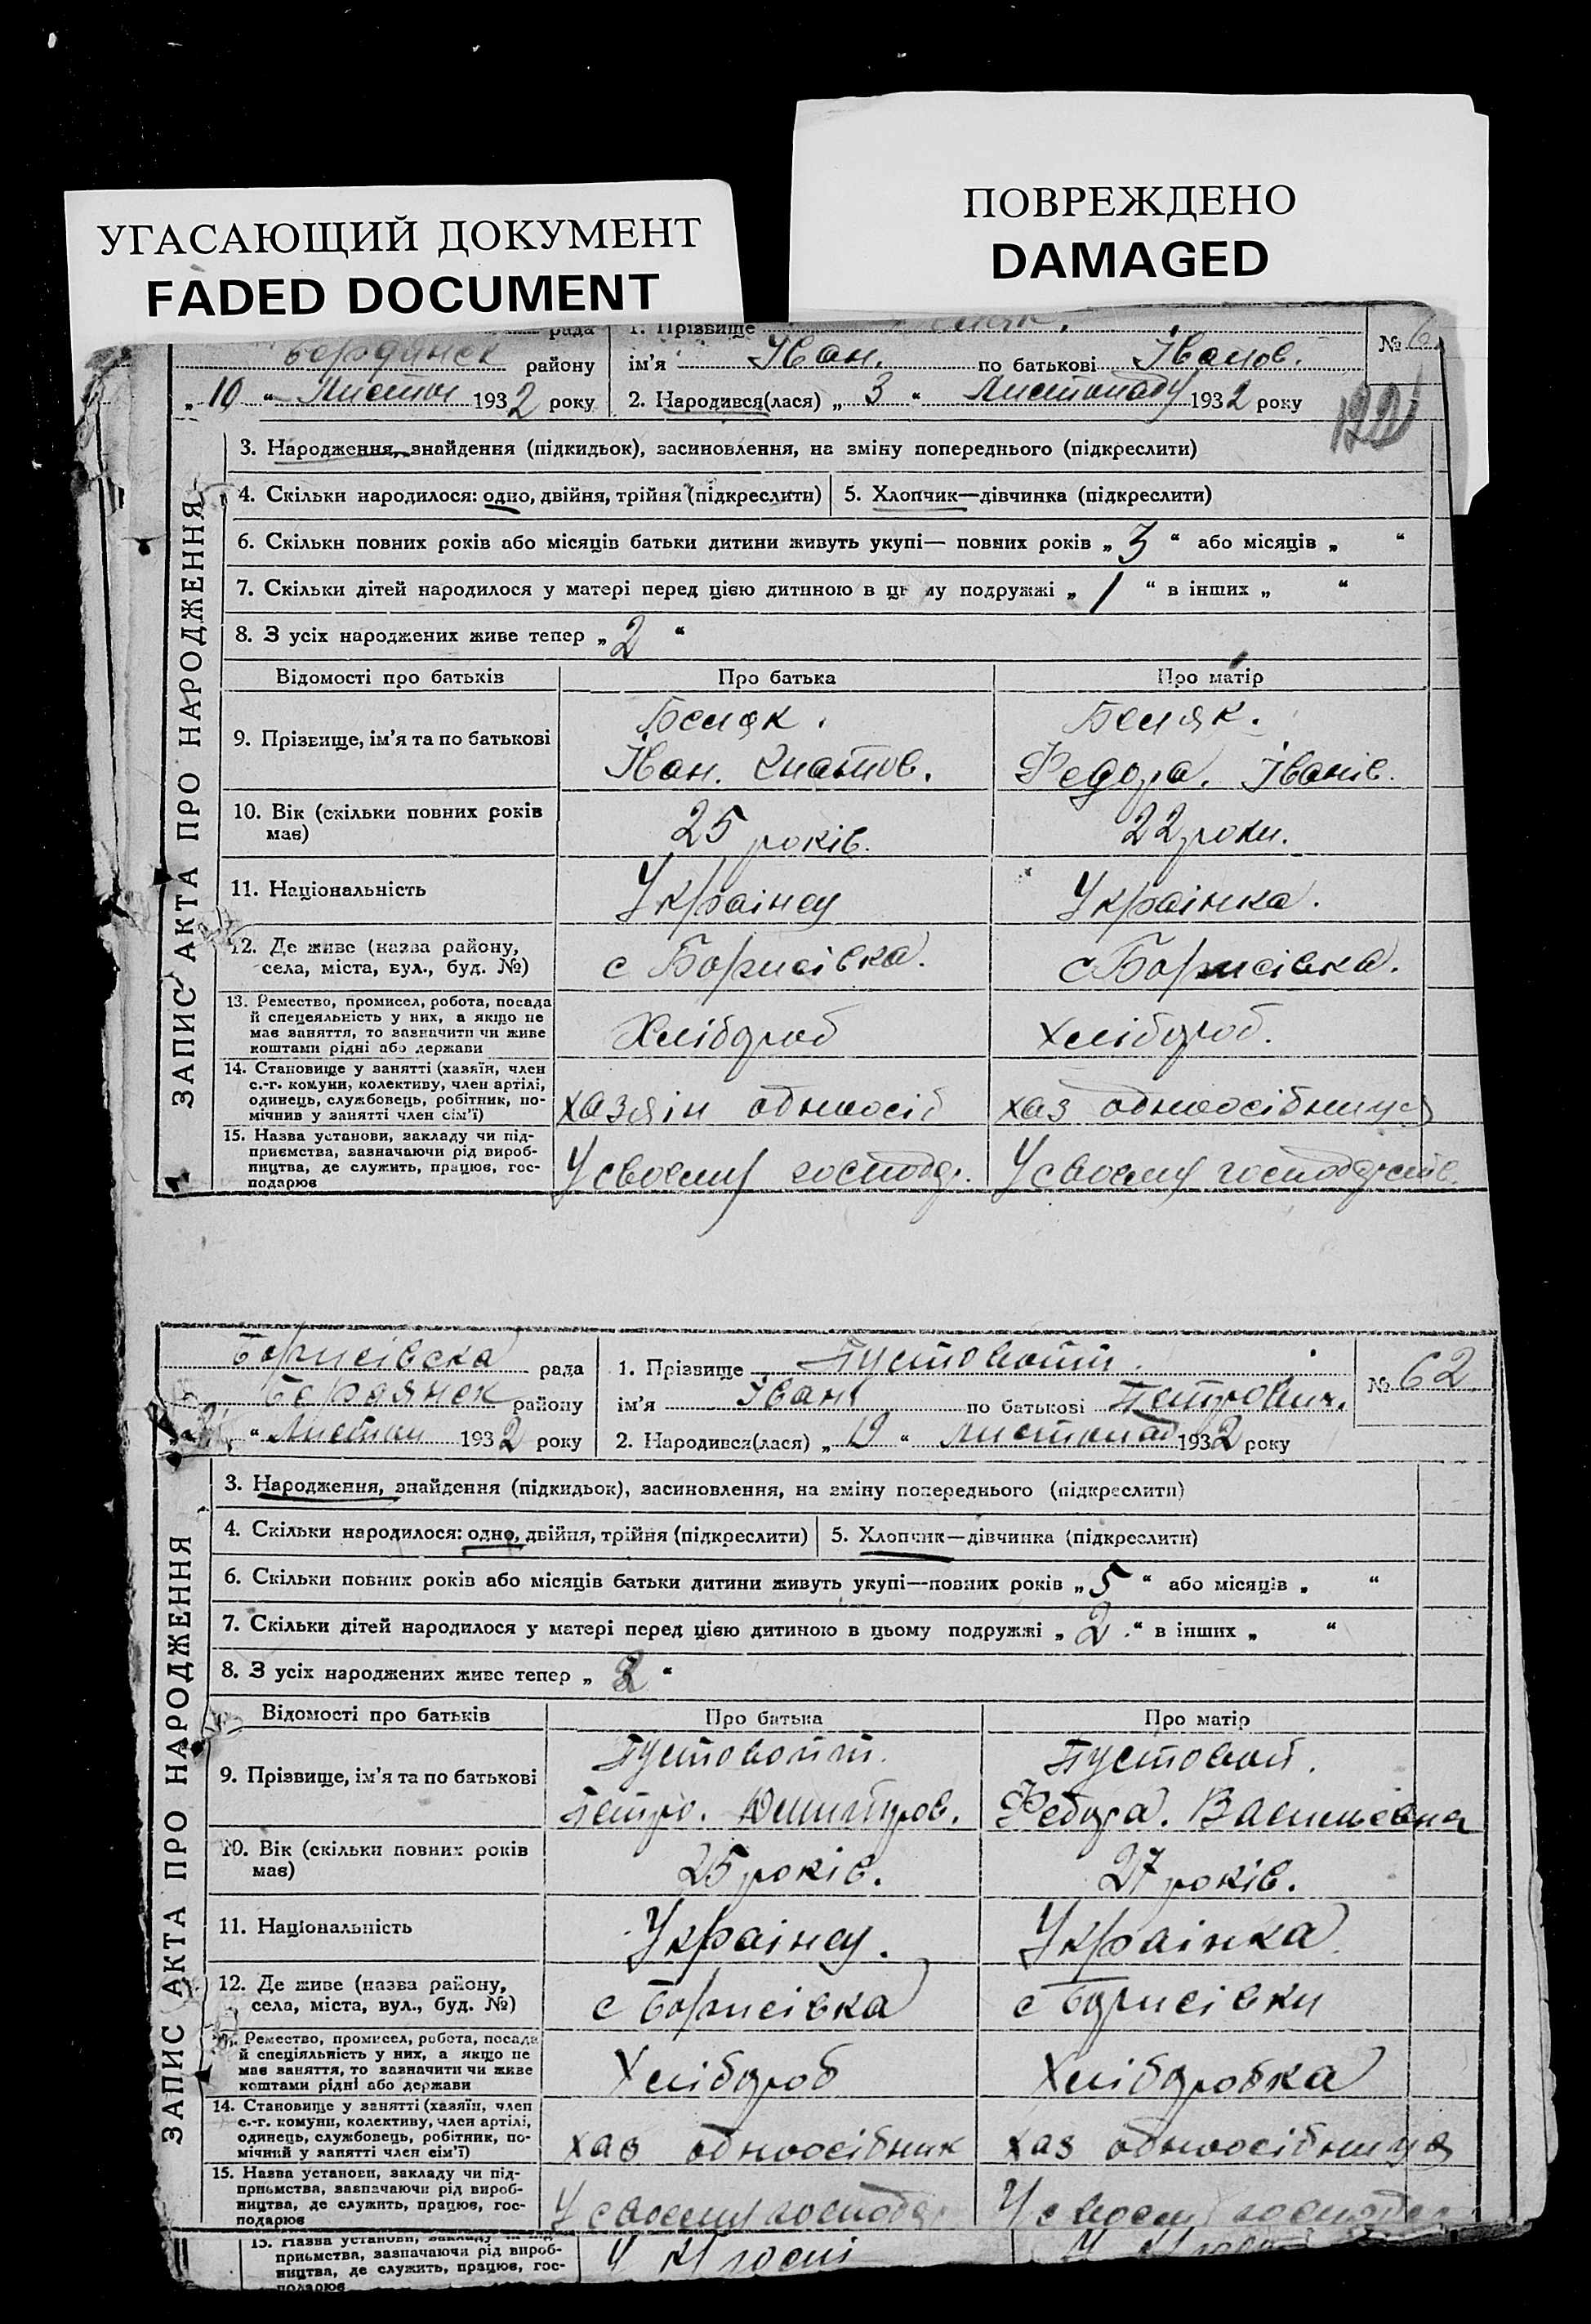 УГАСАЮЩИЙ ДОКУМЕНТ
FADED DOCUMENT
ПОВРЕЖДЕНО
DAMAGED
рада
1. Прізвище
№ 6
Бердянск району
ім'я Іван. по батькові Іванов.
„ 10 “ Листоп 1932 року
2. Народився(лася) „ 3 “ Листопаду 1932 року
ЗАПИС АКТА ПРО НАРОДЖЕННЯ
3. Народження, знайдення (підкидьок), засиновлення, на зміну попереднього (підкреслити)
4. Скільки народилося: одно, двійня, трійня (підкреслити)
5. Хлопчик—дівчинка (підкреслити)
6. Скільки повних років або місяців батьки дитини живуть укупі— повних років „ 3 “ або місяців „ “
7. Скільки дітей народилося у матері перед цією дитиною в цьому подружжі „ 1 “ в інших „ “
8. З усіх народжених живе тепер „ 2 “
Відомості про батьків
Про батька
Про матір
9. Прізвище, ім'я та по батькові
Беляк.
Іван. Гнатов.
Беляк.
Федора. Іванів.
10. Вік (скільки повних років
має)
25 років.
22 роки.
11. Національність
Українец
Українка.
12. Де живе (назва району,
села, міста, вул., буд. №)
с Борисівка.
с Борисівка.
13. Ремество, промисел, робота, посада
й спецеяльність у них, а якщо не
має заняття, то зазначити чи живе
коштами рідні або держави
Хлібороб
хлібороб.
14. Становище у занятті (хазяїн, член
с.-г. комуни, колективу, член артілі,
одинець, службовець, робітник, по-
мічник у занятті член сім'ї)
хазяін одноосіб
хаз одноосібниця
15. Назва установи, закладу чи під-
приємства, зазначаючи рід вироб-
ництва, де служить, працює, гос-
подарює
У своему господ.
У своему господарств.
Борисівска рада
1. Прізвище Пустовойт.
№ 62
Бердянск району
ім'я Іван по батькові Петрович.
“ Листоп 1932 року
2. Народився(лася) „ 19 “ Листопад 1932 року
ЗАПИС АКТА ПРО НАРОДЖЕННЯ
3. Народження, знайдення (підкидьок), засиновлення, на зміну попереднього (підкреслити)
4. Скільки народилося: одно, двійня, трійня (підкреслити)
5. Хлопчик—дівчинка (підкреслити)
6. Скільки повних років або місяців батьки дитини живуть укупі—повних років „ 5 “ або місяців „ “
7. Скільки дітей народилося у матері перед цією дитиною в цьому подружжі „ 2 “ в інших „ “
8. З усіх народжених живе тепер „ “
Відомості про батьків
Про батька
Про матір
9. Прізвище, ім'я та по батькові
Пустовойт.
Петро. Дмитров.
Пустовойт.
Федора. Васильевна
10. Вік (скільки повних років
має)
25 років.
27 років.
11. Національність
Українец.
Українка
12. Де живе (назва району,
села, міста, вул., буд. №)
с Борисівка
с Борисівки
Ремество, промисел, робота, посада
й спеціяльність у них, а якщо не
має заняття, то зазначити чи живе
коштами рідні або держави
Хлібороб
Хліборобка
14. Становище у занятті (хазяїн, член
с.-г. комуни, колективу, член артілі,
одинець, службовець, робітник, по-
мічний у занятті член сім'ї)
хаз одноосібник
хаз одноосібниця
15. Назва установи, закладу чи під-
приємства, зазначаючи рід вироб-
ництва, де служить, працює, гос-
подарює
У своему господар
У своему господар
15. Назва установи, закладу чи під-
приємства, зазначаючи рід вироб-
ництва, де служить, працює, гос-
подарює